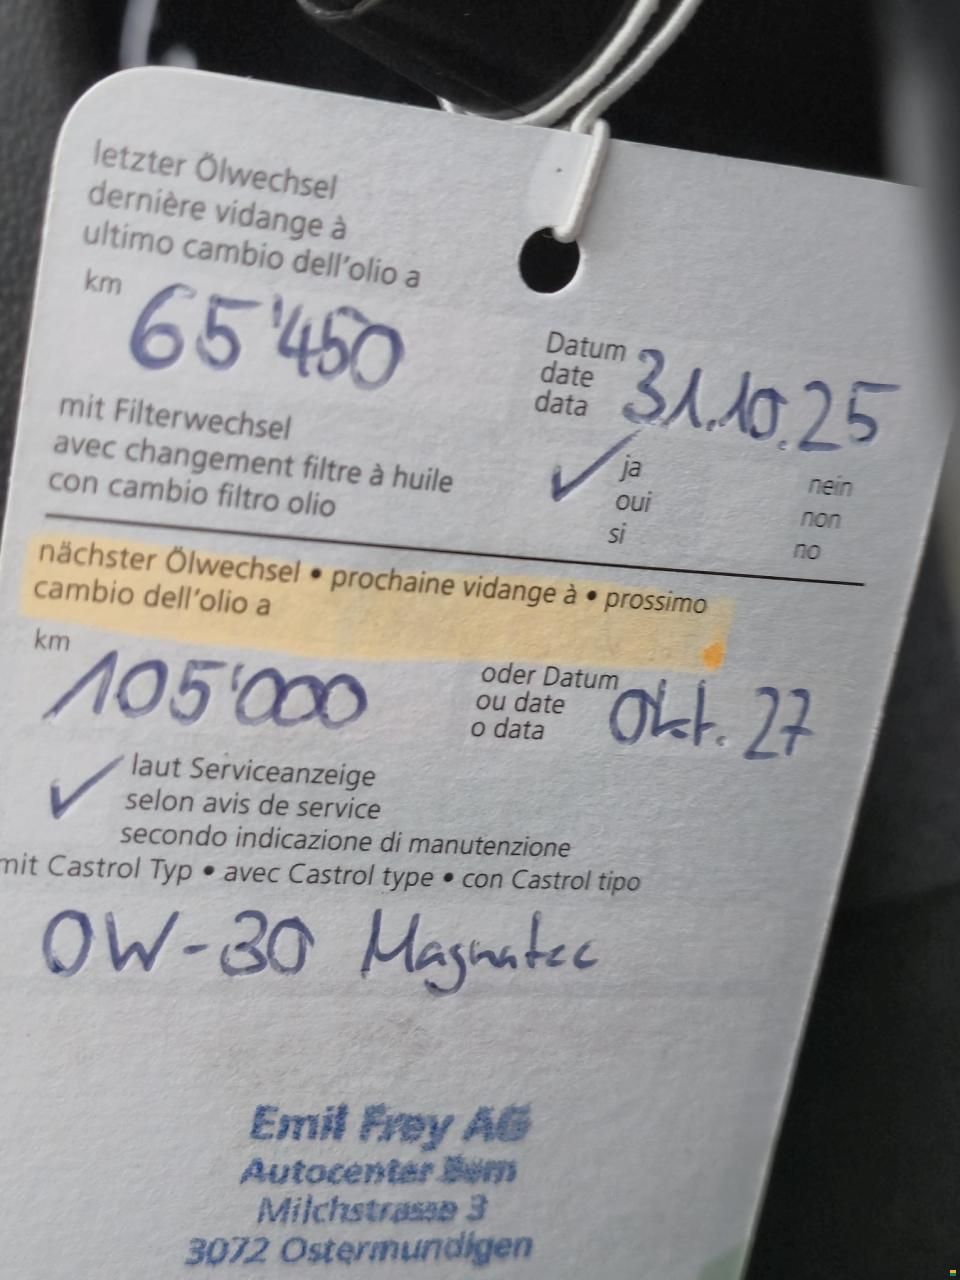 letzter Ölwechsel
dernière vidange à
ultimo cambio dell'olio a
km 65'450
Datum
date 31.10.25
data
mit Filterwechsel
avec changement filtre à huile
con cambio filtro olio
✓ ja nein
oui non
si no
nächster Ölwechsel • prochaine vidange à • prossimo
cambio dell'olio a
km 105'000
oder Datum
ou date Okt. 27
o data
✓ laut Serviceanzeige
selon avis de service
secondo indicazione di manutenzione
mit Castrol Typ • avec Castrol type • con Castrol tipo
0W-30 Magnatec
Emil Frey AG
Autocenter Bern
Milchstrasse 3
3072 Ostermundigen